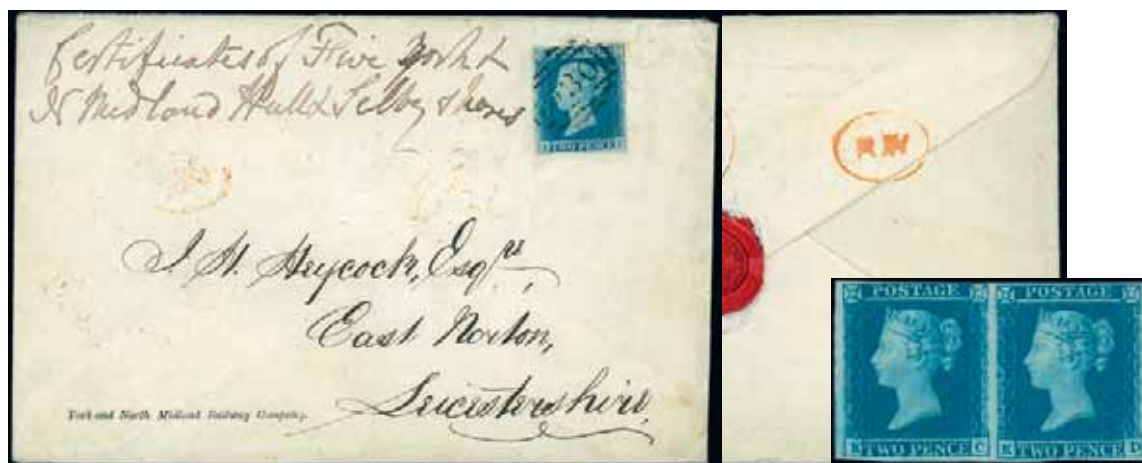 Certificates of Five York &
N Midland Hull & Selby shares
TWO PENCE
J. H. Heycock, Esqre,
East Norton,
Leicestershire,
York and North Midland Railway Company.
POSTAGE POSTAGE
K TWO PENCE C K TWO PENCE D